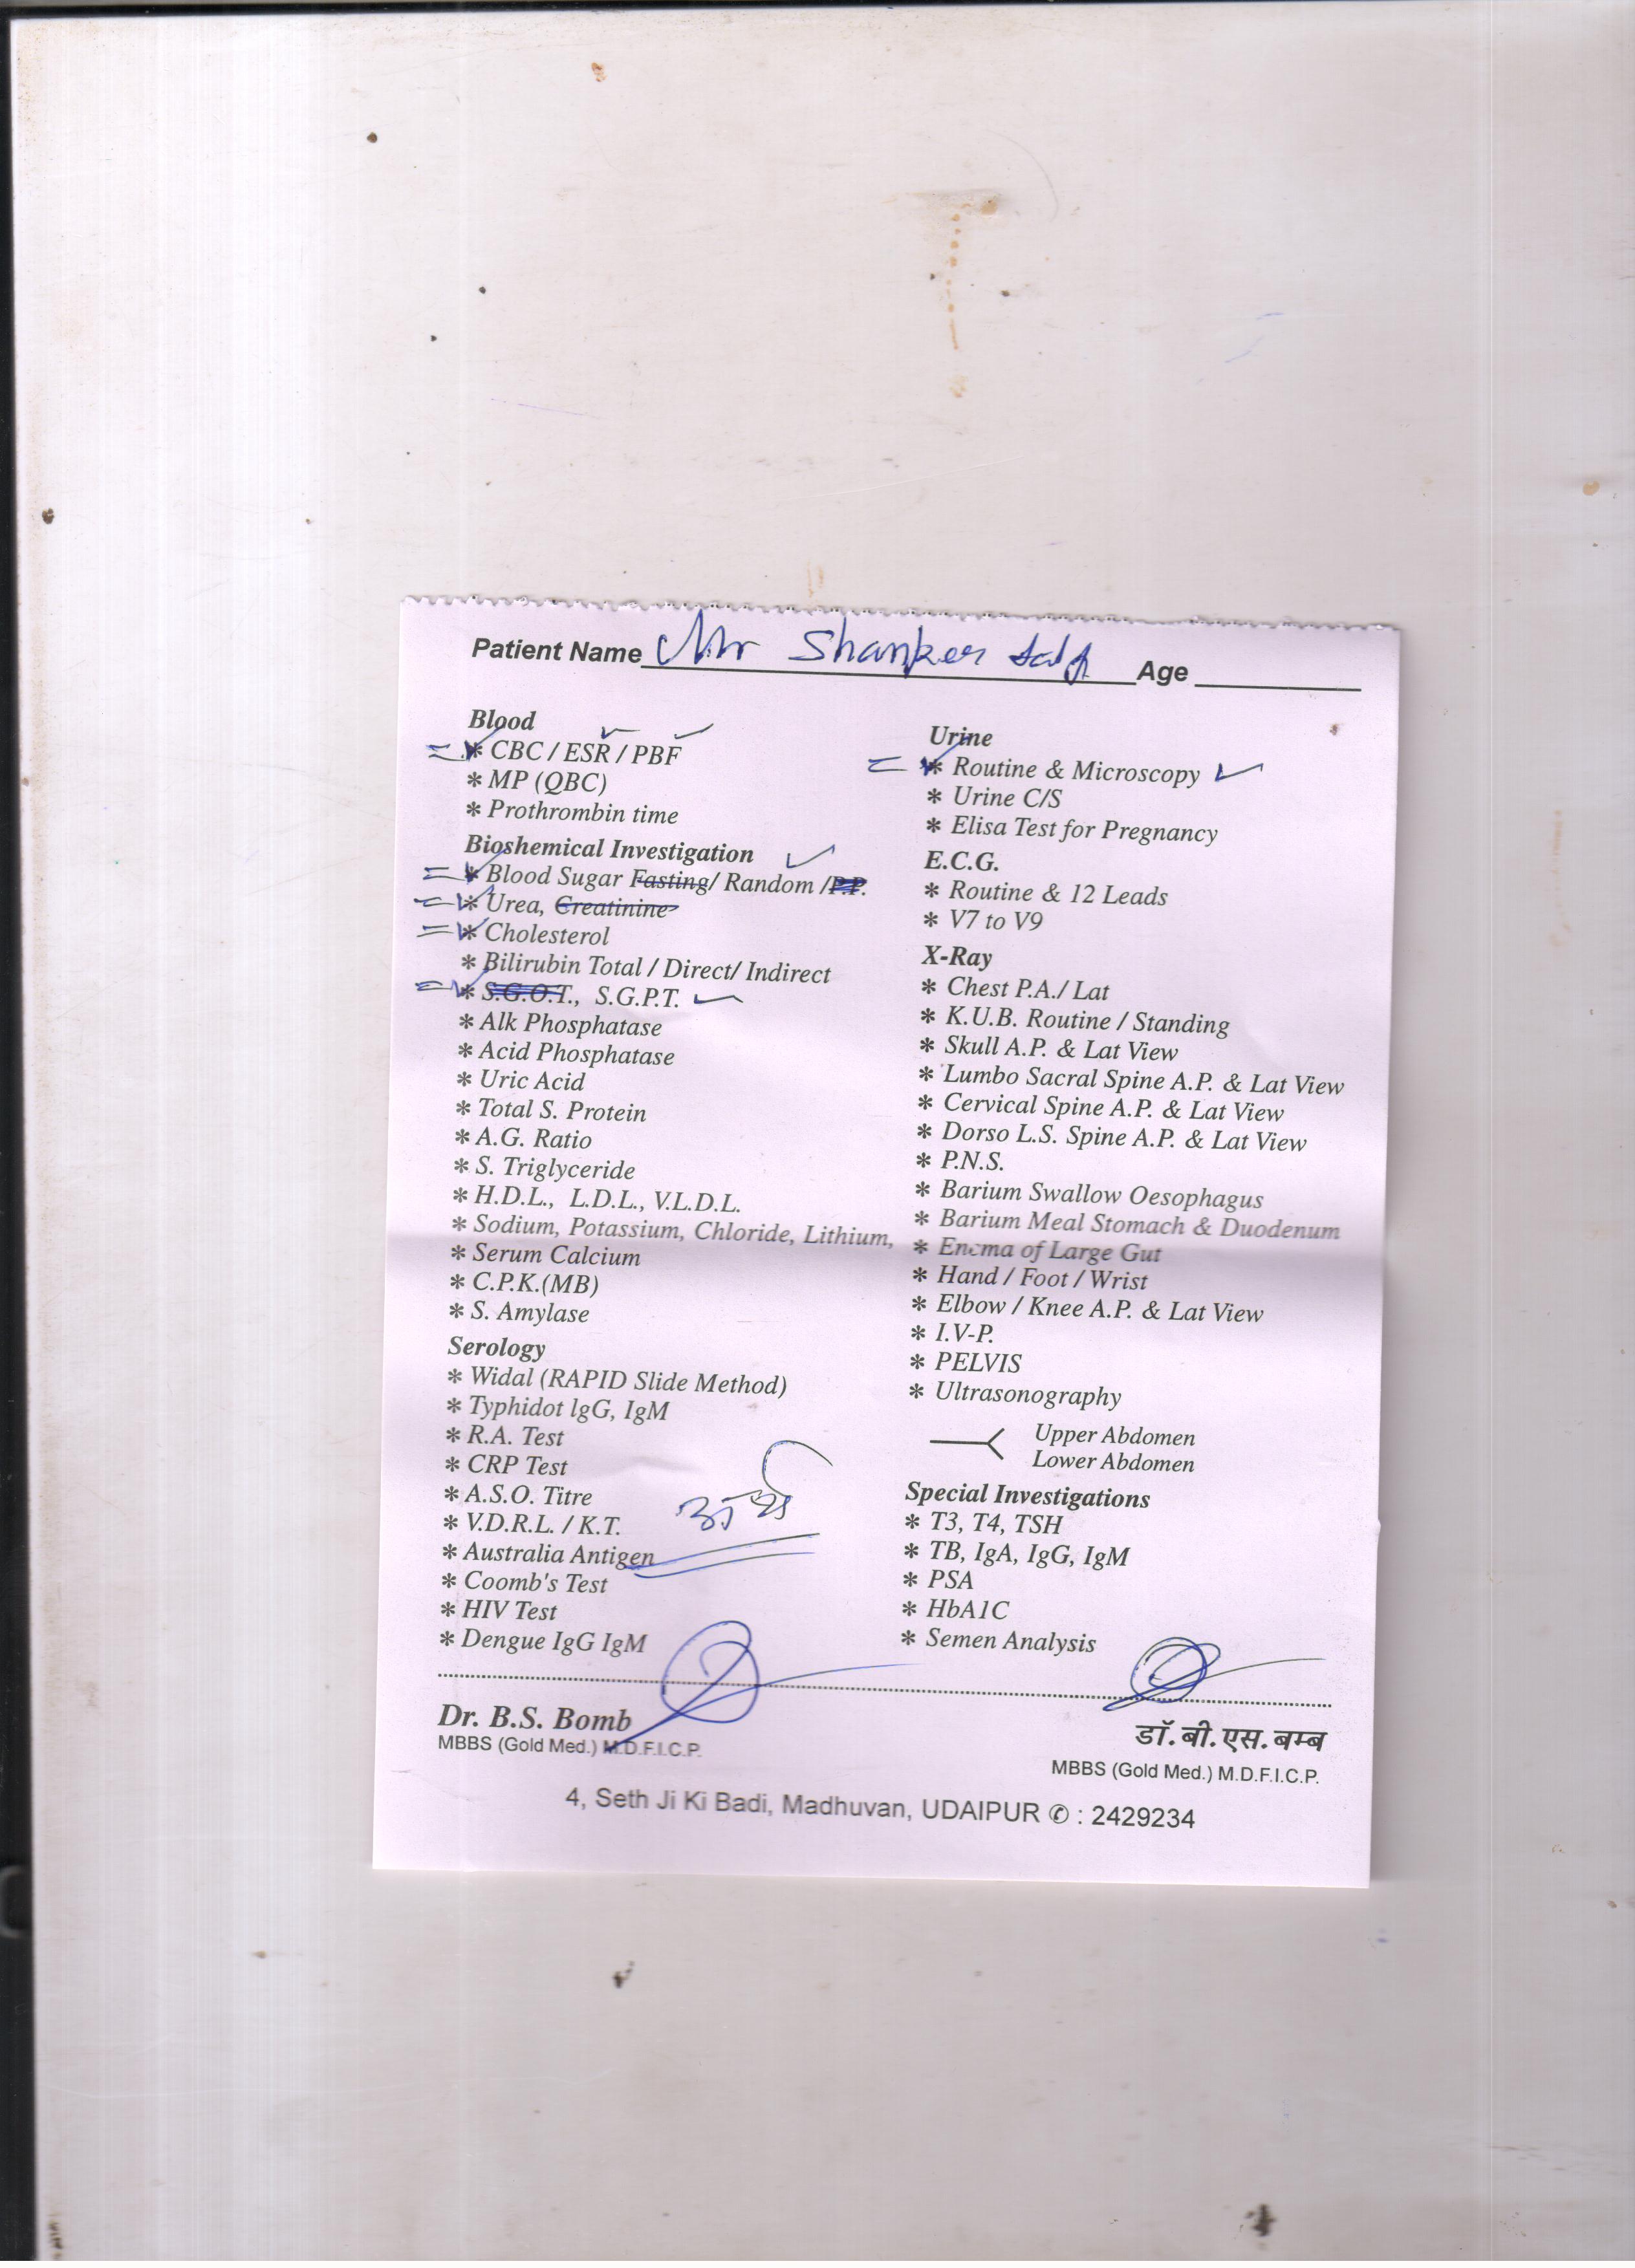 Patient Name Mr Shanker Age
Blood
* CBC / ESR / PBF
* MP (QBC)
* Prothrombin time
Bioshemical Investigation
* Blood Sugar Fasting/ Random /P.P.
* Urea, Creatinine
* Cholesterol
* Bilirubin Total / Direct/ Indirect
* S.G.O.T., S.G.P.T.
* Alk Phosphatase
* Acid Phosphatase
* Uric Acid
* Total S. Protein
* A.G. Ratio
* S. Triglyceride
* H.D.L., L.D.L., V.L.D.L.
* Sodium, Potassium, Chloride, Lithium,
* Serum Calcium
* C.P.K.(MB)
* S. Amylase
Serology
* Widal (RAPID Slide Method)
* Typhidot lgG, IgM
* R.A. Test
* CRP Test
* A.S.O. Titre
* V.D.R.L. / K.T.
* Australia Antigen
* Coomb's Test
* HIV Test
* Dengue IgG IgM
Urine
* Routine & Microscopy
* Urine C/S
* Elisa Test for Pregnancy
E.C.G.
* Routine & 12 Leads
* V7 to V9
X-Ray
* Chest P.A./ Lat
* K.U.B. Routine / Standing
* Skull A.P. & Lat View
* Lumbo Sacral Spine A.P. & Lat View
* Cervical Spine A.P. & Lat View
* Dorso L.S. Spine A.P. & Lat View
* P.N.S.
* Barium Swallow Oesophagus
* Barium Meal Stomach & Duodenum
* Enema of Large Gut
* Hand / Foot / Wrist
* Elbow / Knee A.P. & Lat View
* I.V-P.
* PELVIS
* Ultrasonography
Upper Abdomen
Lower Abdomen
Special Investigations
* T3, T4, TSH
* TB, IgA, IgG, IgM
* PSA
* HbA1C
* Semen Analysis
Dr. B.S. Bomb
MBBS (Gold Med.) M.D.F.I.C.P.
डॉ. बी. एस. बम्ब
MBBS (Gold Med.) M.D.F.I.C.P.
4, Seth Ji Ki Badi, Madhuvan, UDAIPUR ✆ : 2429234